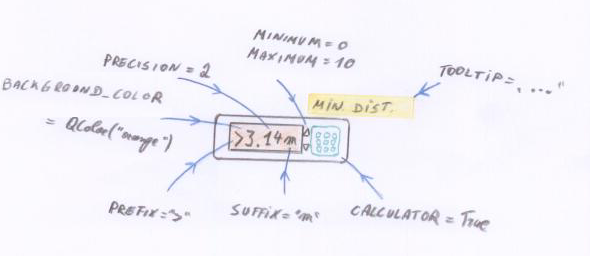 MINIMUM = 0
MAXIMUM = 10
PRECISION = 2
TOOLTIP = "...."
BACKGROUND_COLOR
= QColor("orange")
MIN. DIST.
>3.14m
PREFIX=">"
SUFFIX="m"
CALCULATOR = True